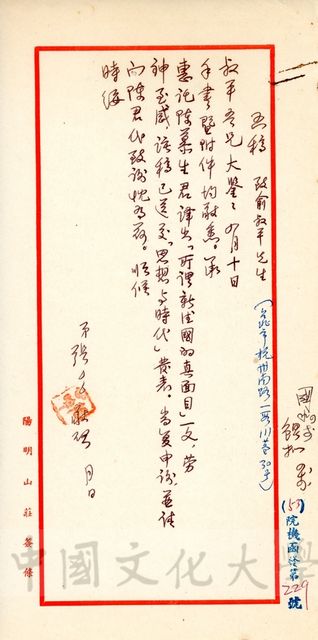 函稿 致俞叔平先生
(台北市杭州南路一段八十一巷30号)
叔平吾兄大鑒：八月十日
手書暨附件均敬悉。承
惠託陳慕生君譯出「所謂新德國的真面目」一文，勞
神至感，該稿已送交「思想与時代」發表。當复申謝，並請
向陳君代致謝忱為荷。順候
時綏
弟張 敬啓 月 日
(53)院機函字第229號
陽明山莊箋條
中國文化大學